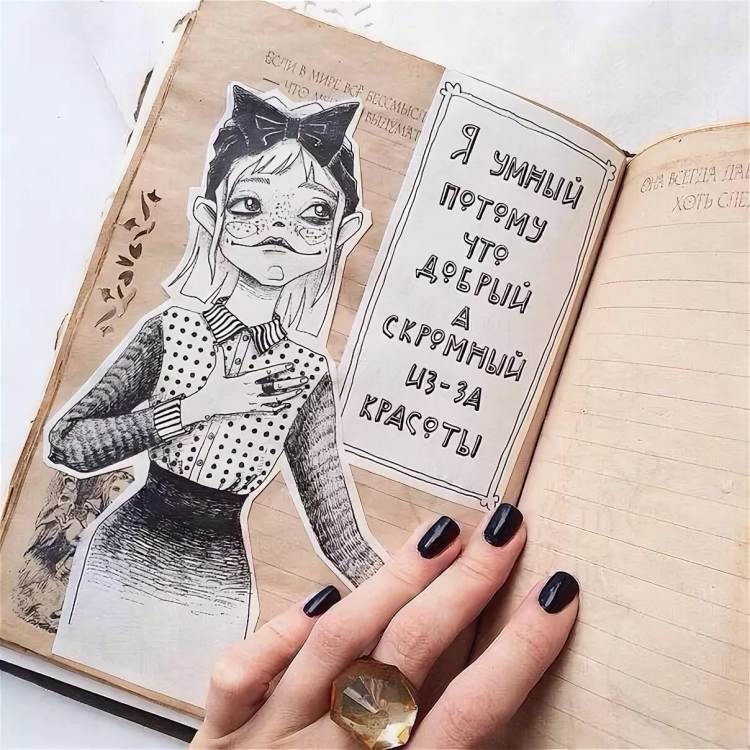 ЕСЛИ В МИРЕ ВСЁ БЕССМЫСЛ
— ЧТО
ВЫДУМАТ
Я УМНЫЙ
ПОТОМУ
ЧТО
ДОБРЫЙ
А
СКРОМНЫЙ
ИЗ-ЗА
КРАСОТЫ
ОНА ВСЕГДА ДАВ
ХОТЬ СЛЕД